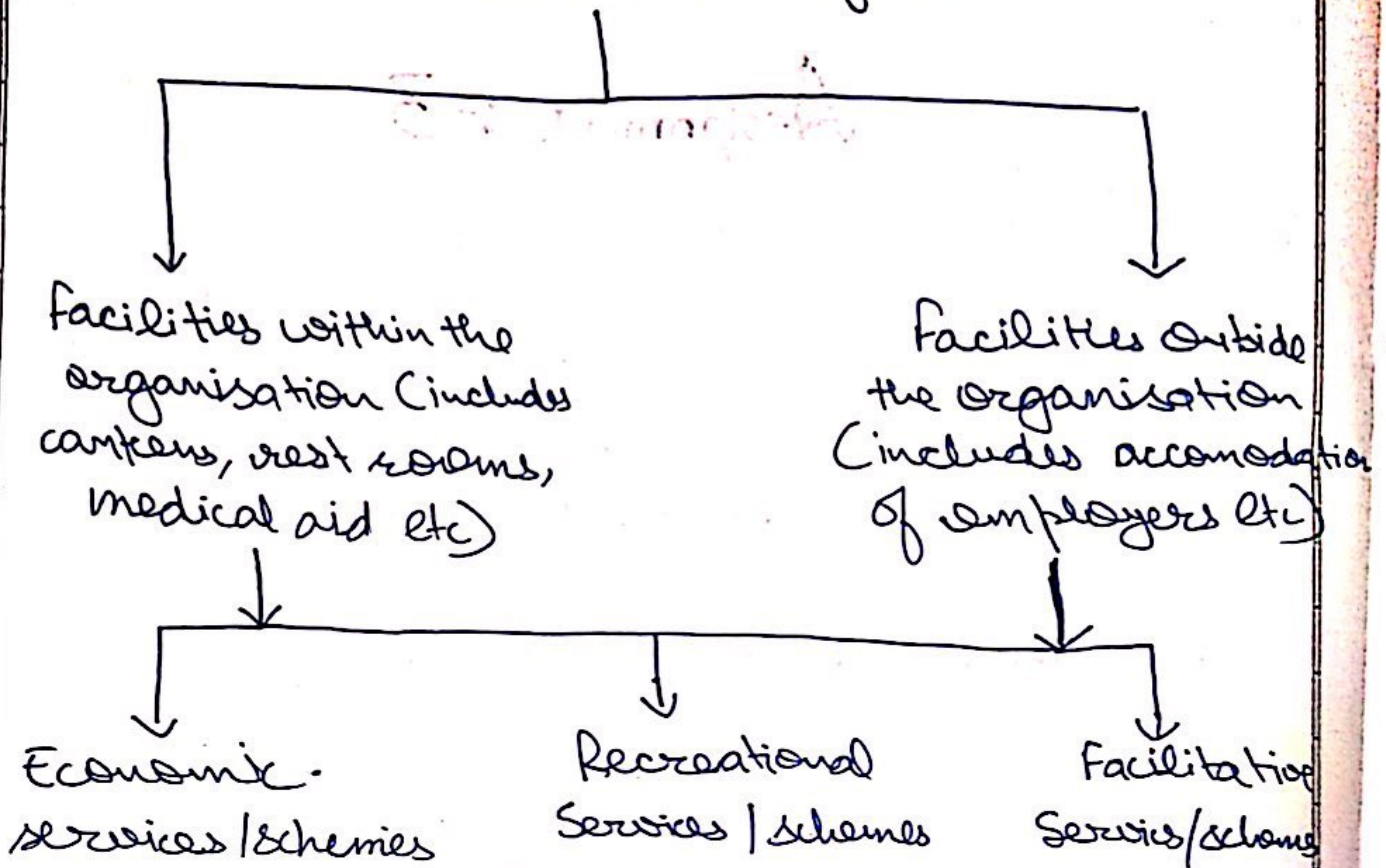 Facilities within the
organisation (includes
canteens, rest rooms,
medical aid etc)
Facilities Outside
the organisation
(includes accomodation
of employers etc)
Economic.
services/schemies
Recreational
Services/schemes
Facilitative
Servics/schems